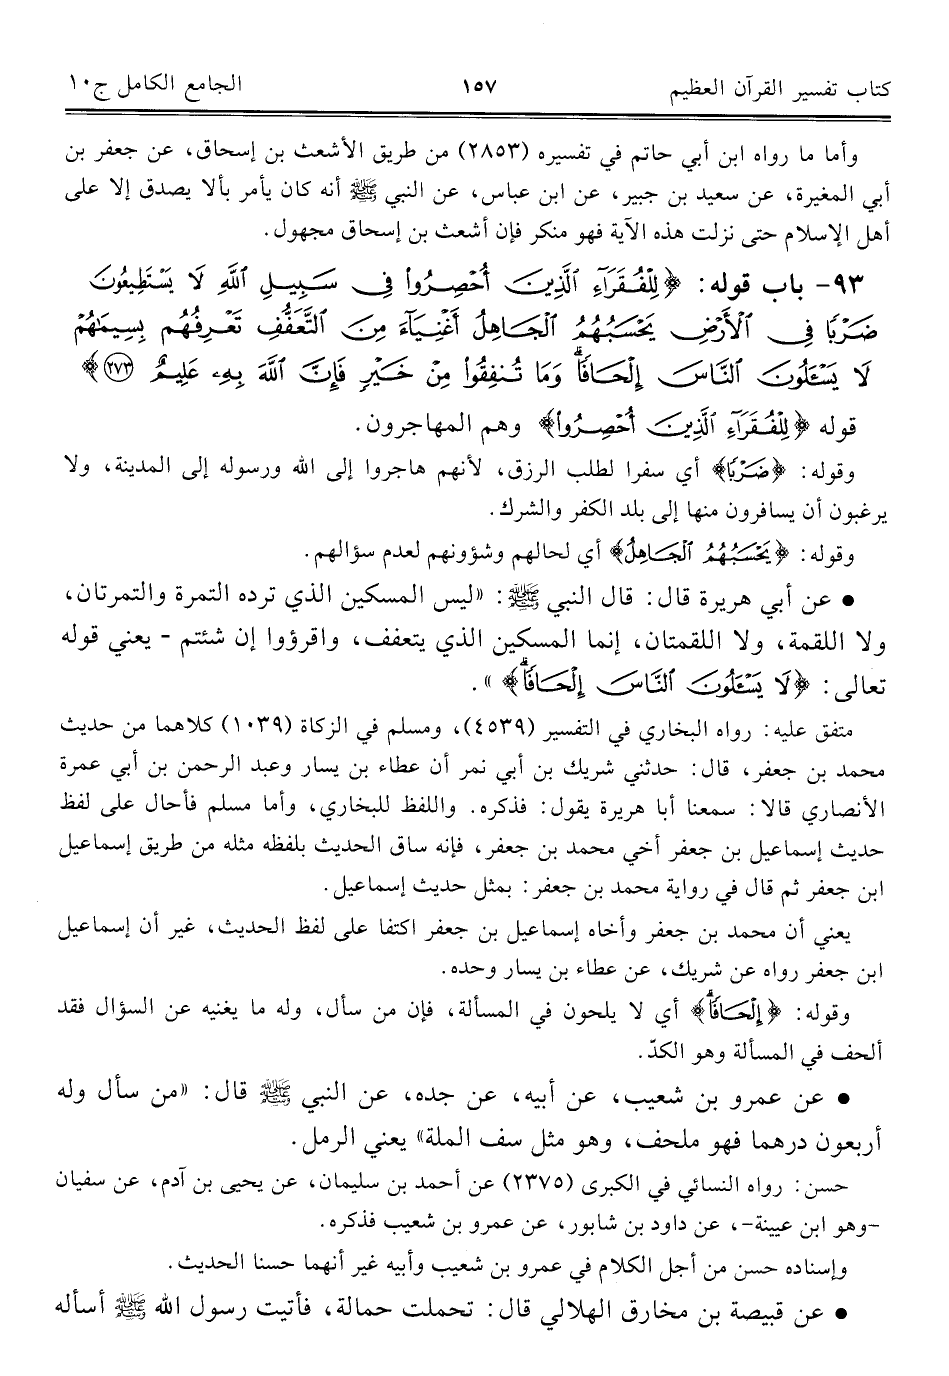 كتاب تفسير القرآن العظيم ١٥٧ الجامع الكامل ج١٠
وأما ما رواه ابن أبي حاتم في تفسيره (٢٨٥٣) من طريق الأشعث بن إسحاق، عن جعفر بن
أبي المغيرة، عن سعيد بن جبير، عن ابن عباس، عن النبي ﷺ أنه كان يأمر بألا يصدق إلا على
أهل الإسلام حتى نزلت هذه الآية فهو منكر فإن أشعث بن إسحاق مجهول.
٩٣- باب قوله: ﴿لِلْفُقَرَآءِ ٱلَّذِينَ أُحْصِرُوا۟ فِى سَبِيلِ ٱللَّهِ لَا يَسْتَطِيعُونَ
ضَرْبًا فِى ٱلْأَرْضِ يَحْسَبُهُمُ ٱلْجَاهِلُ أَغْنِيَآءَ مِنَ ٱلتَّعَفُّفِ تَعْرِفُهُم بِسِيمَٰهُمْ
لَا يَسْـَٔلُونَ ٱلنَّاسَ إِلْحَافًا ۗ وَمَا تُنفِقُوا۟ مِنْ خَيْرٍ فَإِنَّ ٱللَّهَ بِهِۦ عَلِيمٌ ٢٧٣﴾
قوله ﴿لِلْفُقَرَآءِ ٱلَّذِينَ أُحْصِرُوا۟﴾ وهم المهاجرون.
وقوله: ﴿ضَرْبًا﴾ أي سفرا لطلب الرزق، لأنهم هاجروا إلى الله ورسوله إلى المدينة، ولا
يرغبون أن يسافرون منها إلى بلد الكفر والشرك.
وقوله: ﴿يَحْسَبُهُمُ ٱلْجَاهِلُ﴾ أي لحالهم وشؤونهم لعدم سؤالهم.
• عن أبي هريرة قال: قال النبي ﷺ: «ليس المسكين الذي ترده التمرة والتمرتان،
ولا اللقمة، ولا اللقمتان، إنما المسكين الذي يتعفف، واقرؤوا إن شئتم - يعني قوله
تعالى: ﴿لَا يَسْـَٔلُونَ ٱلنَّاسَ إِلْحَافًا ۗ﴾».
متفق عليه: رواه البخاري في التفسير (٤٥٣٩)، ومسلم في الزكاة (١٠٣٩) كلاهما من حديث
محمد بن جعفر، قال: حدثني شريك بن أبي نمر أن عطاء بن يسار وعبد الرحمن بن أبي عمرة
الأنصاري قالا: سمعنا أبا هريرة يقول: فذكره. واللفظ للبخاري، وأما مسلم فأحال على لفظ
حديث إسماعيل بن جعفر أخي محمد بن جعفر، فإنه ساق الحديث بلفظه مثله من طريق إسماعيل
ابن جعفر ثم قال في رواية محمد بن جعفر: بمثل حديث إسماعيل.
يعني أن محمد بن جعفر وأخاه إسماعيل بن جعفر اكتفا على لفظ الحديث، غير أن إسماعيل
ابن جعفر رواه عن شريك، عن عطاء بن يسار وحده.
وقوله: ﴿إِلْحَافًا ۗ﴾ أي لا يلحون في المسألة، فإن من سأل، وله ما يغنيه عن السؤال فقد
ألحف في المسألة وهو الكدّ.
• عن عمرو بن شعيب، عن أبيه، عن جده، عن النبي ﷺ قال: «من سأل وله
أربعون درهما فهو ملحف، وهو مثل سف الملة» يعني الرمل.
حسن: رواه النسائي في الكبرى (٢٣٧٥) عن أحمد بن سليمان، عن يحيى بن آدم، عن سفيان
-وهو ابن عيينة-، عن داود بن شابور، عن عمرو بن شعيب فذكره.
وإسناده حسن من أجل الكلام في عمرو بن شعيب وأبيه غير أنهما حسنا الحديث.
• عن قبيصة بن مخارق الهلالي قال: تحملت حمالة، فأتيت رسول الله ﷺ أسأله